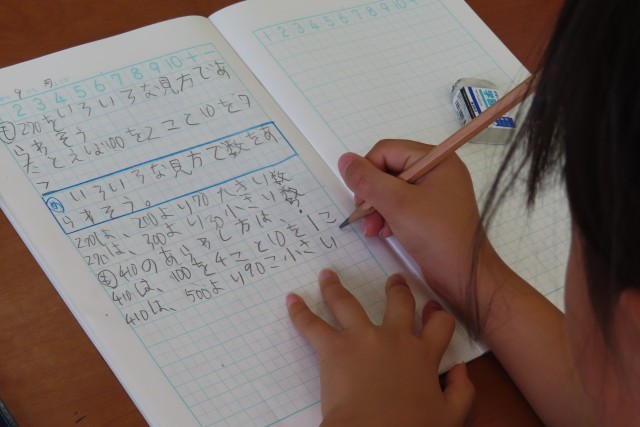 2 3 4 5 6 7 8 9 10
1 2 3 4 5 6 7 8 9 10
270をいろいろな見方であ
らわそう
たとえば100を2こと10を7
いろいろな見方で数をあ
らわそう。
270は、200より70大きい数
270は、300より30小さい数
410のあらわし方は、?
410は、100を4こと10を1こ
410は、500より90こ小さい